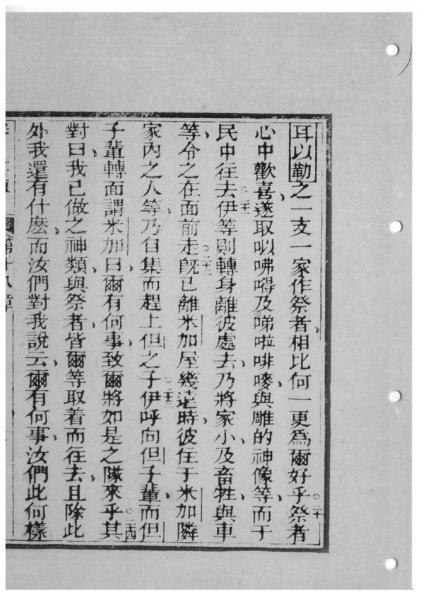 耳以勒之一支一家作祭者相比何一更為爾好乎祭者
心中歡喜遂取㕽咈嘚及啼啦啡嘜與雕的神像等而于
民中往去伊等則轉身離彼處去乃將家小及畜牲與車
等令之在面前走旣已離米加屋幾遠時彼住于米加隣
家內之人等乃自集而趕上但之子伊呼向但子輩而但
子輩轉面謂米加曰爾有何事致爾將如是之隊來乎其
對曰我已做之神類與祭者皆爾等取着而往去且除此
外我還有什麽而汝們對我說云爾有何事汝們此何樣
第十八章